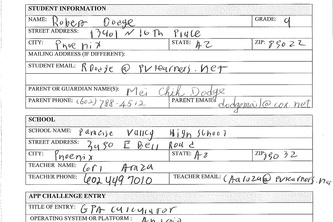 STUDENT INFORMATION
NAME: Robert Dodge GRADE: 9
STREET ADDRESS: 17401 N 16th Place
CITY: Phoenix STATE: AZ ZIP: 85022
MAILING ADDRESS (IF DIFFERENT):
STUDENT EMAIL: RDodge@pvlearners.net
PARENT OR GUARDIAN NAME(S): Mei Chih Dodge
PARENT PHONE: (602) 788-4512 PARENT EMAIL: dodgemail@cox.net
SCHOOL
SCHOOL NAME: Paradise Valley High School
STREET ADDRESS: 3950 E Bell Road
CITY: Phoenix STATE: AZ ZIP: 85032
TEACHER NAME: Lori Araza
TEACHER PHONE: 602 449 7010 TEACHER EMAIL: LAraza@pvlearners.net
APP CHALLENGE ENTRY
TITLE OF ENTRY: GPA Calculator
OPERATING SYSTEM OR PLATFORM: